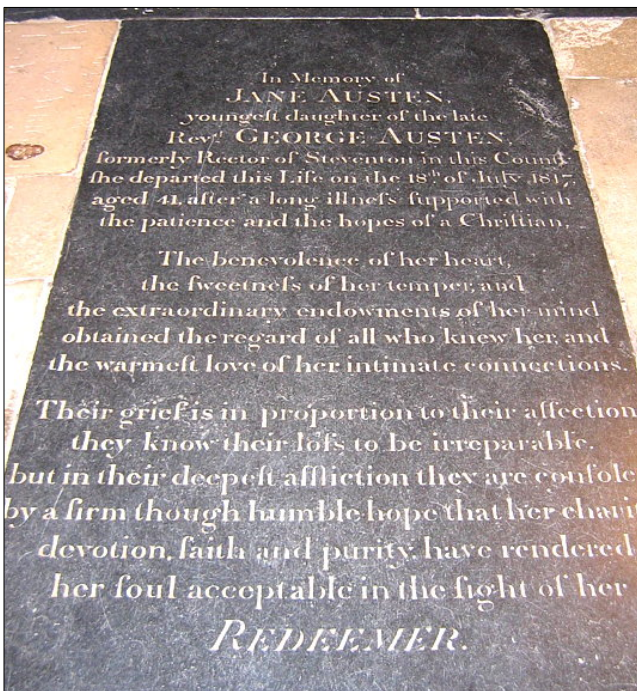 In Memory of
JANE AUSTEN,
youngeſt daughter of the late
Revᵈ GEORGE AUSTEN,
formerly Rector of Steventon in this Count
ſhe departed this Life on the 18ᵗʰ of July 1817,
aged 41, after a long illneſs ſupported with
the patience and the hopes of a Chriſtian,
The benevolence of her heart,
the ſweetneſs of her temper, and
the extraordinary endowments of her mind
obtained the regard of all who knew her, and
the warmeſt love of her intimate connections.
Their grief is in proportion to their affection
they know their loſs to be irreparable,
but in their deepeſt affliction they are conſole
by a firm though humble hope that her chari
devotion, faith and purity, have rendered
her ſoul acceptable in the ſight of her
REDEEMER.